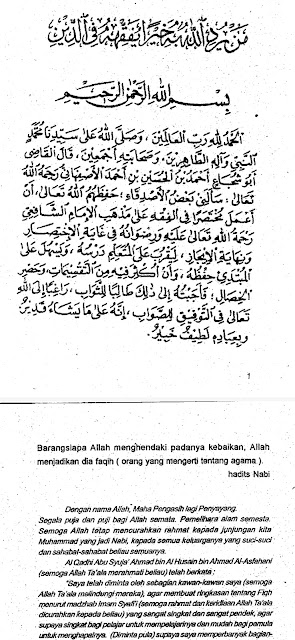 مَنْ يُرِدِ اللهُ بِهِ خَيْرًا يُفَقِّهْهُ فِي الدِّيْنِ
بِسْمِ اللهِ الرَّحْمٰنِ الرَّحِيْمِ
الْحَمْدُ لِلّٰهِ رَبِّ الْعَالَمِيْنَ ، وَصَلَّى اللهُ عَلَى سَيِّدِنَا مُحَمَّدٍ
النَّبِيِّ وَآلِهِ الطَّاهِرِيْنَ ، وَصَحَابَتِهِ أَجْمَعِيْنَ ، قَالَ الْقَاضِي
أَبُو شُجَاعٍ أَحْمَدُ بْنُ الْحُسَيْنِ بْنِ أَحْمَدَ الْأَصْفَهَانِيُّ رَحِمَهُ اللهُ
تَعَالَى : سَأَلَنِي بَعْضُ الْأَصْدِقَاءِ ، حَفِظَهُمُ اللهُ تَعَالَى ، أَنْ
أَعْمَلَ مُخْتَصَرًا فِي الْفِقْهِ عَلَى مَذْهَبِ الْإِمَامِ الشَّافِعِيِّ
رَحْمَةُ اللهِ تَعَالَى عَلَيْهِ وَرِضْوَانُهُ فِي غَايَةِ الْإِخْتِصَارِ
وَنِهَايَةِ الْإِيْجَازِ ، لِيَقْرُبَ عَلَى الْمُتَعَلِّمِ دَرْسُهُ ، وَيَسْهُلَ عَلَى
الْمُبْتَدِئِ حِفْظُهُ ، وَأَنْ أُكْثِرَ فِيْهِ مِنَ التَّقْسِيْمَاتِ ، وَحَصْرِ
الْخِصَالِ ، فَأَجَبْتُهُ إِلَى ذٰلِكَ طَالِبًا لِلثَّوَابِ ، رَاغِبًا إِلَى اللهِ
تَعَالَى فِي التَّوْفِيْقِ لِلصَّوَابِ ، إِنَّهُ عَلَى مَا يَشَاءُ قَدِيْرٌ
وَبِعِبَادِهِ لَطِيْفٌ خَبِيْرٌ .
1
Barangsiapa Allah menghendaki padanya kebaikan, Allah
menjadikan dia faqih ( orang yang mengerti tentang agama ).
hadits Nabi
Dengan nama Allah, Maha Pengasih lagi Penyayang.
Segala puja dan puji bagi Allah semata. Pemelihara alam semesta.
Semoga Allah tetap mencurahkan rahmat kepada junjungan kita
Muhammad yang jadi Nabi, kepada semua keluarganya yang suci-suci
dan sahabat-sahabat beliau semuanya.
Al Qadhi Abu Syuja' Ahmad bin Al Husain bin Ahmad Al-Asfahani
(semoga Allah Ta'ala merahmati beliau) telah berkata :
"Saya telah diminta oleh sebagian kawan-kawan saya (semoga
Allah Ta'ala melindungi mereka), agar membuat ringkasan tentang Fiqh
menurut madzhab Imam Syafi'i (semoga rahmat dan keridlaan Allah Ta'ala
dicurahkan kepada beliau) yang sangat singkat dan sangat pendek, agar
supaya singkat bagi pelajar untuk mempelajarinya dan mudah bagi pemula
untuk menghapalnya. (Diminta pula) supaya saya memperbanyak bagian-